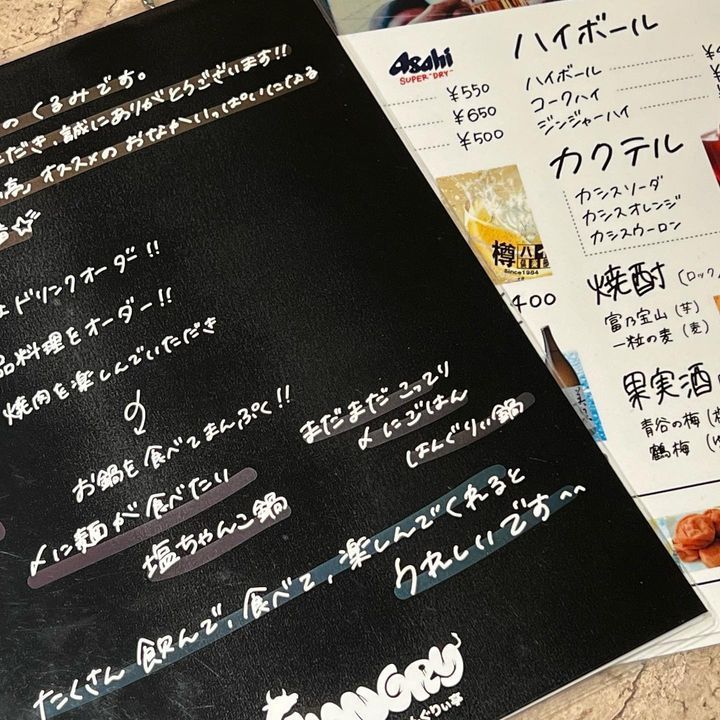 のくるみです。
だき、誠にありがとうございます!!
オススメのおなかいっぱいになる
ドリンクオーダー!!
品料理をオーダー!!
焼肉を楽しんでいただき
お鍋を食べてまんぷく!!
〆に麺が食べたい
塩ちゃんこ鍋
まだまだこってり
〆にごはん
はんぐりぃ鍋
たくさん飲んで、食べて、楽しんでくれると
うれしいです〜
HUNGRY
ぐりぃ亭
Asahi
SUPER "DRY"
¥550
¥650
¥500
樽ハイ
倶楽部
Since1984
¥400
ハイボール
ハイボール
コークハイ
ジンジャーハイ
カクテル
カシスソーダ
カシスオレンジ
カシスウーロン
焼酎 (ロック
富乃宝山 (芋)
一粒の麦 (麦)
果実酒
青谷の梅
鶴梅 (ゆ